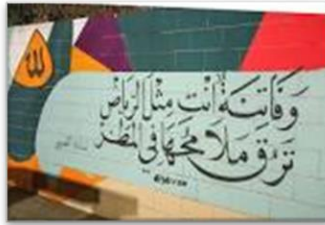 وَفَاتِنَةٌ أنتِ مِثْلَ الرياضْ
تَرِقّ مَلَامحُهَا في المَطَرْ